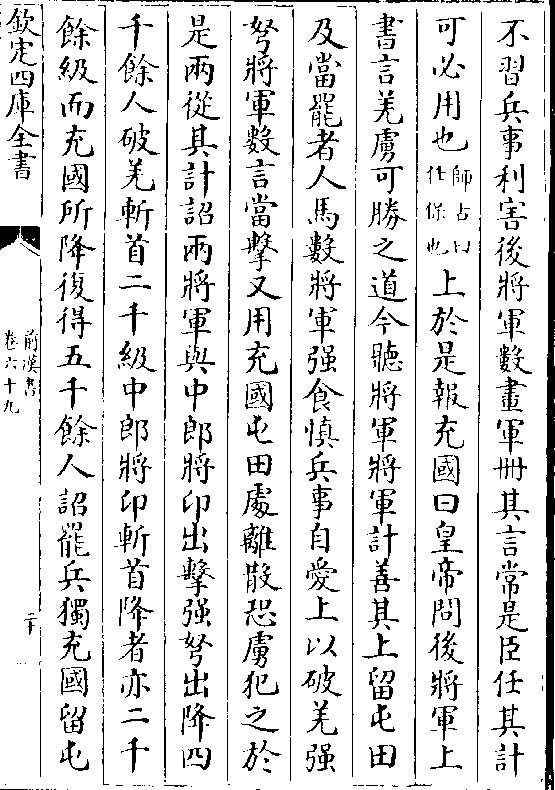 不習兵事利害後將軍數畫軍冊其言常是臣任其計
可必用也師古曰任保也上於是報充國曰皇帝問後將軍上
書言羌虜可勝之道今聽將軍將軍計善其上留屯田
及當罷者人馬數將軍强食慎兵事自愛上以破羌强
弩將軍數言當擊又用充國屯田處離散恐虜犯之於
是兩從其計詔兩將軍與中郎將卬出擊强弩出降四
千餘人破羌斬首二千級中郎將卬斬首降者亦二千
餘級而充國所降復得五千餘人詔罷兵獨充國留屯
欽定四庫全書
前漢書
卷六十九
二十